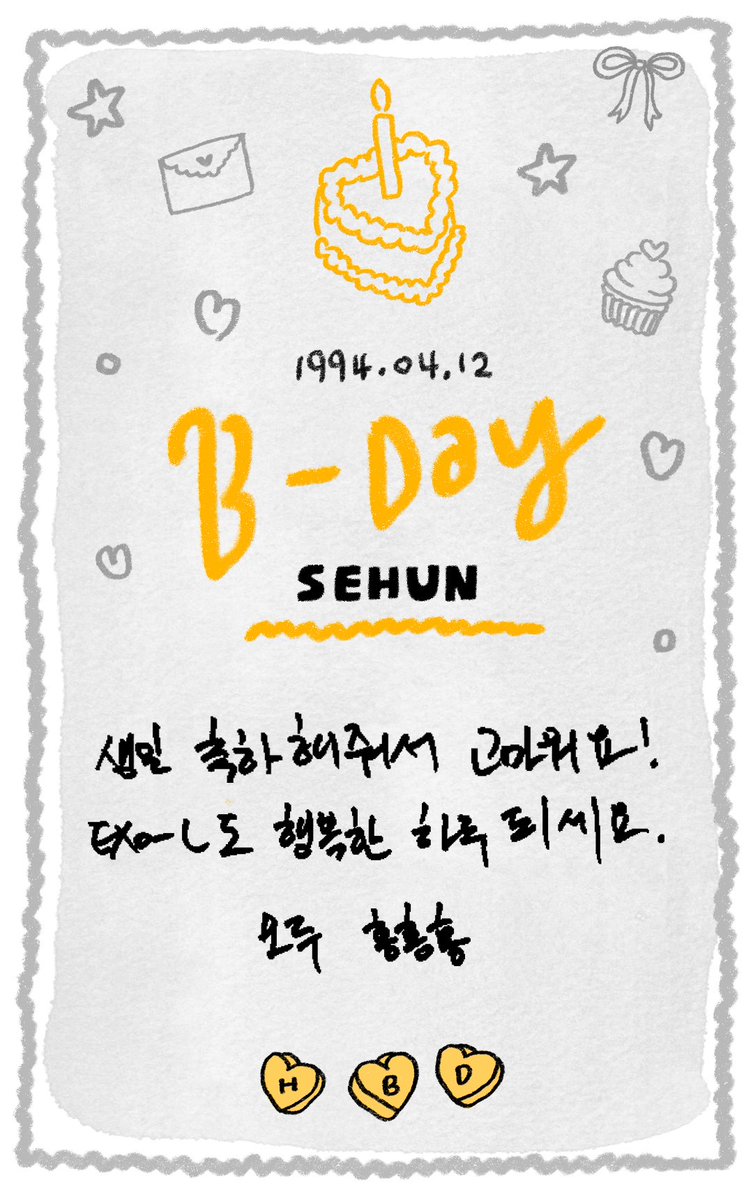 1994.04.12
B-Day
SEHUN
생일 축하해줘서 고마워요!
EXO-L도 행복한 하루 되세요.
모두 홍홍홍
H B D